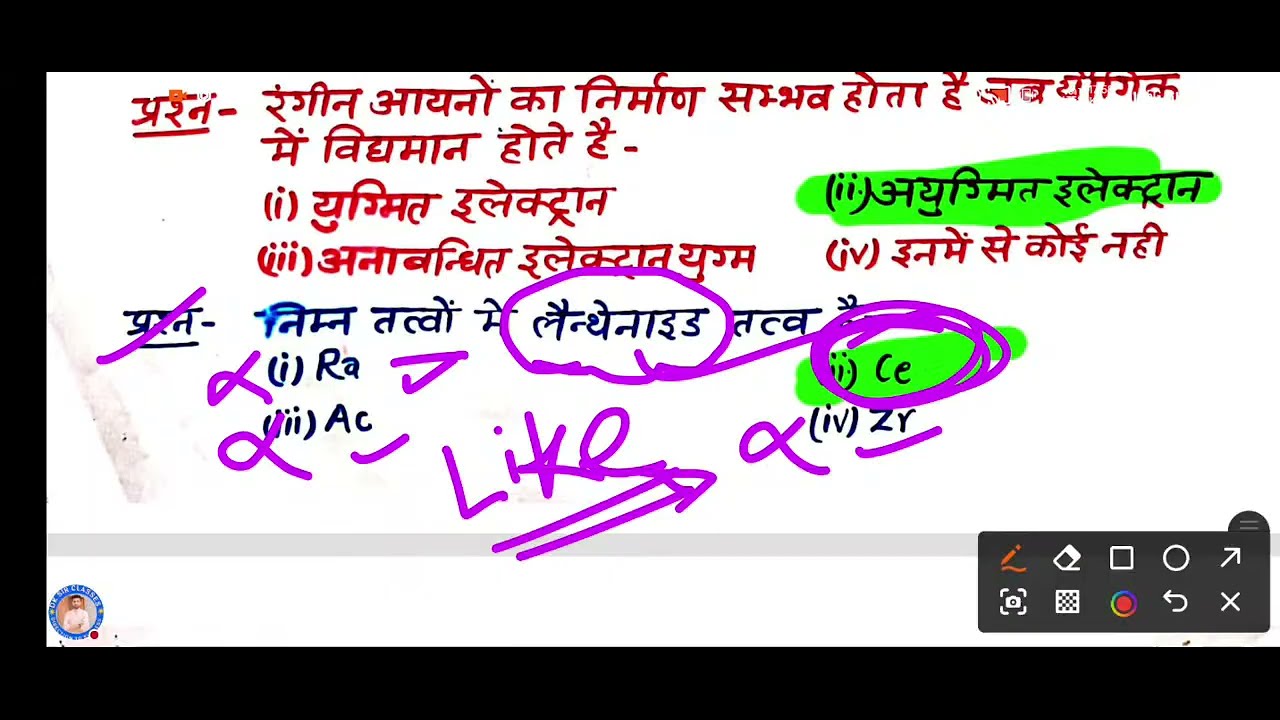 प्रश्न- रंगीन आयनो का निर्माण सम्भव होता है जब यौगिक
में विद्यमान होते है -
(i) युग्मित इलेक्ट्रान (ii) अयुग्मित इलेक्ट्रान
(iii) अनाबन्धित इलेक्ट्रान युग्म (iv) इनमें से कोई नही
प्रश्न- निम्न तत्वों मे लैन्थेनाइड तत्व है
(i) Ra (ii) Ce
(iii) Ac (iv) Zr
Like
DK SIR CLASSES